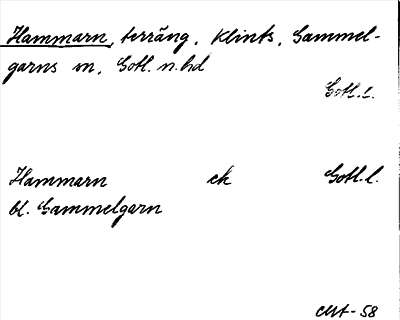 Hammarn, terräng, Klints, Gammel-
garns sn, Gotl. n. hd
Gotl. l.
Hammarn ek Gotl. l.
bl. Gammelgarn
-58